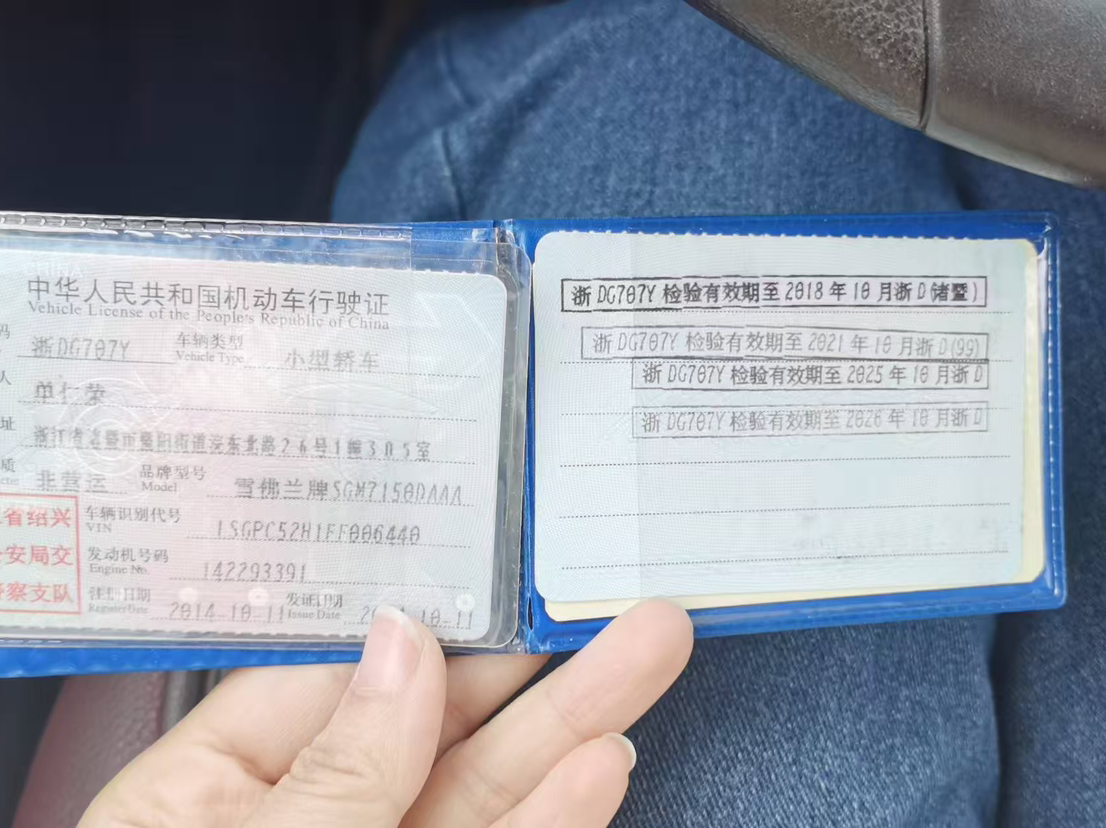 中华人民共和国机动车行驶证
Vehicle License of the People's Republic of China
码 浙DG707Y 车辆类型 小型轿车
Vehicle Type
人 单仁荣
址 浙江省诸暨市暨阳街道浣东北路26号1幢305室
质 非营运 品牌型号 雪佛兰牌SGM7150DAAA
Model
车辆识别代号 LSGPC52H1FF006440
VIN
省绍兴
安局交
警察支队
发动机号码 142293391
Engine No.
注册日期 2014-10-11 发证日期
Register Date Issue Date
浙DG707Y 检验有效期至2018年10月浙D(诸暨)
浙DG707Y 检验有效期至2021年10月浙D(99)
浙DG707Y 检验有效期至2025年10月浙D
浙DG707Y 检验有效期至2026年10月浙D